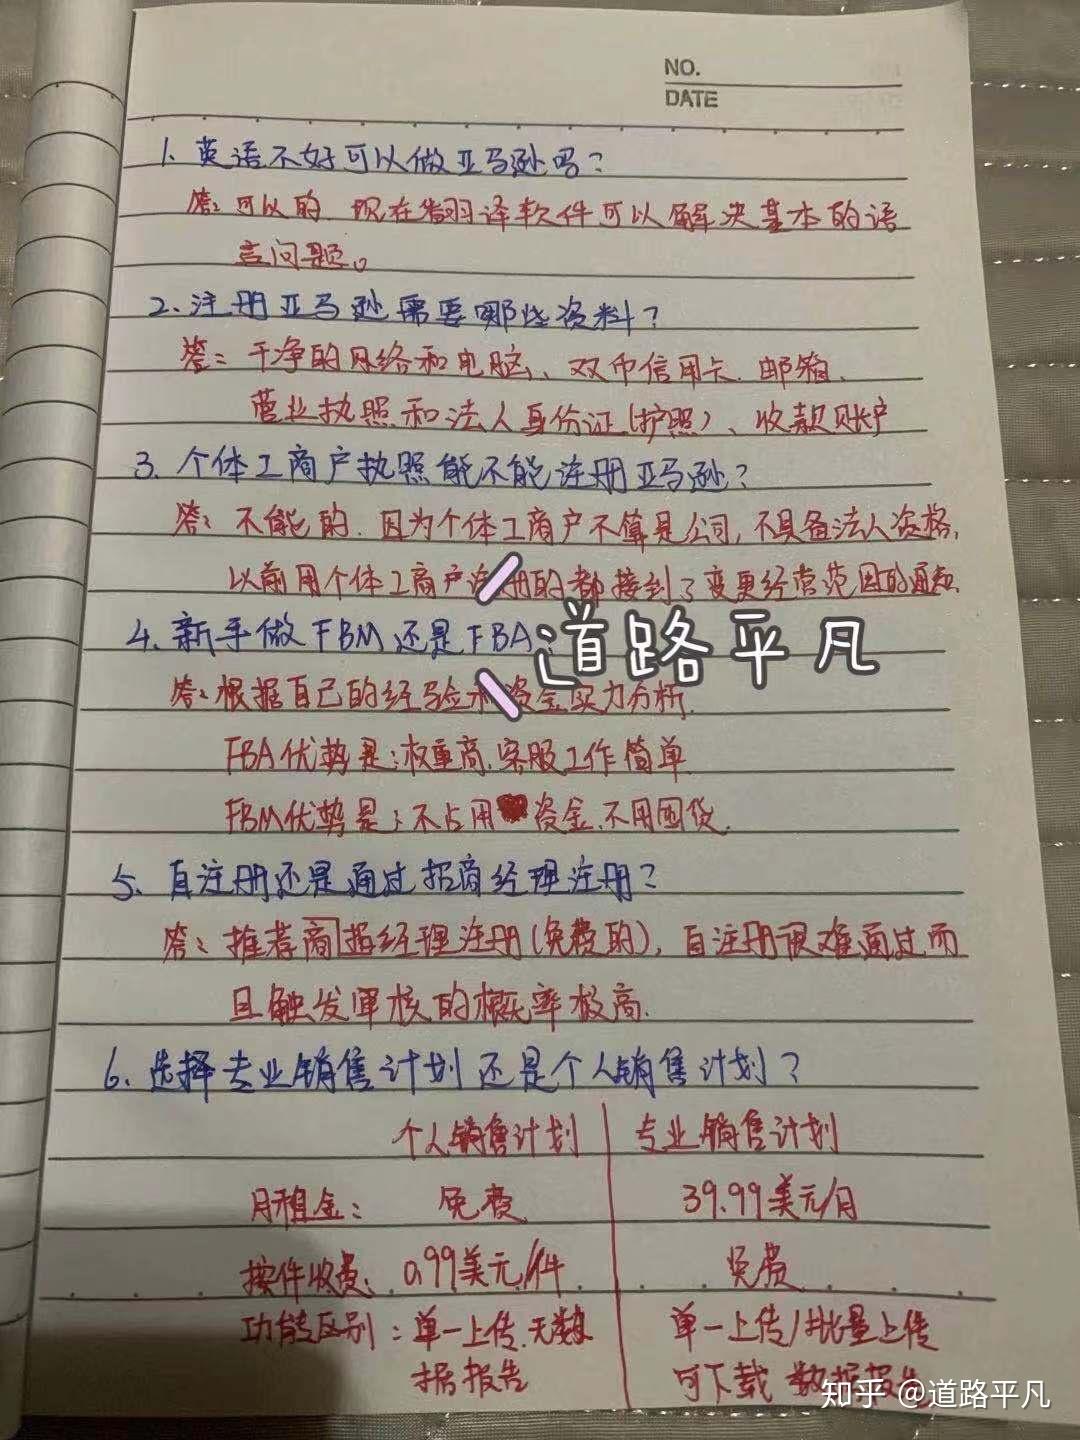 NO.
DATE
1. 英语不好可以做亚马逊吗？
答：可以的 现在翻译软件可以解决基本的语
言问题。
2. 注册亚马逊需要哪些资料？
答：干净的网络和电脑、双币信用卡、邮箱、
营业执照和法人身份证(护照)、收款账户
3. 个体工商户执照能不能注册亚马逊？
答：不能的. 因为个体工商户不算是公司, 不具备法人资格,
以前用个体工商户注册的都接到了变更经营范围的通知
4. 新手做FBM还是FBA
道路平凡
答：根据自己的经验和资金实力分析.
FBA优势是：权重高.客服工作简单
FBM优势是：不占用资金.不用囤货.
5. 自注册还是通过招商经理注册？
答：推荐商招经理注册(免费的), 自注册很难通过而
且触发审核的概率极高.
6. 选择专业销售计划还是个人销售计划？
个人销售计划 专业销售计划
月租金： 免费 39.99美元/月
按件收费： 0.99美元/件 免费
功能区别：单一上传.无数 单一上传/批量上传
据报告 可下载 数据报告
知乎 @道路平凡